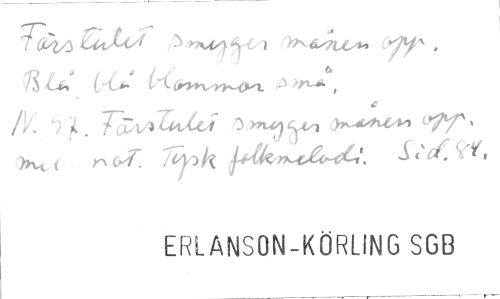 Förstulet smyger månen opp.
Blå, blå blommor små.
N. 47. Förstulet smyger månen opp.
mel. not. Tysk folkmelodi. Sid. 84.
ERLANSON-KÖRLING SGB